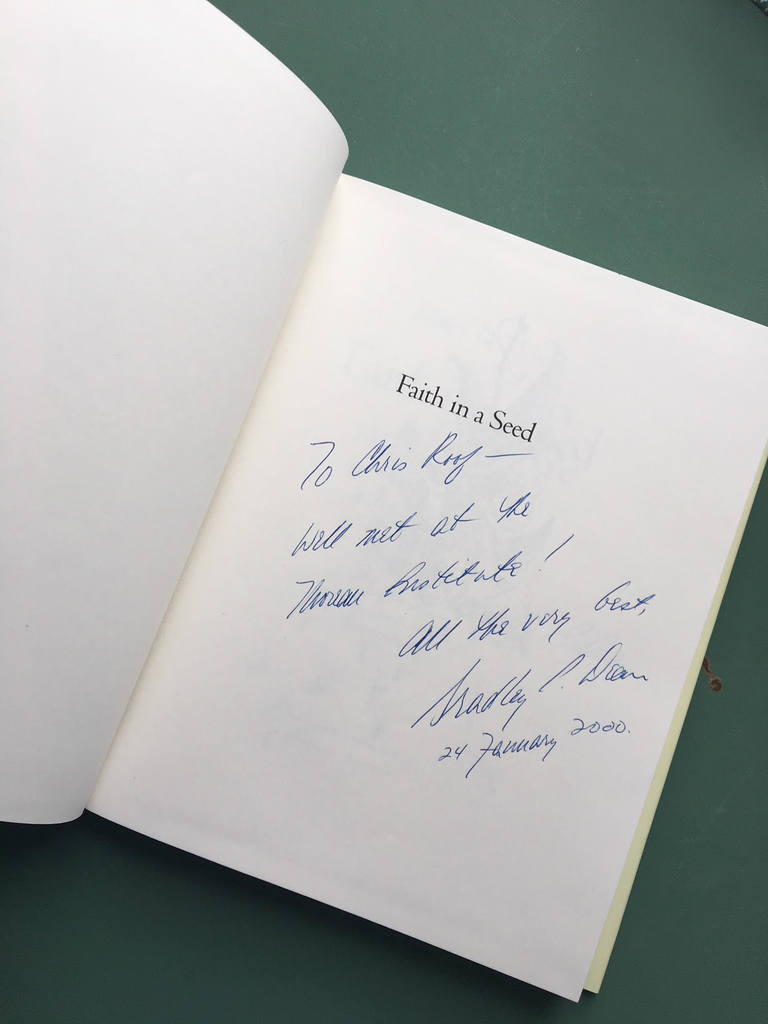 Faith in a Seed
To Chris Roof —
Well met at the
Thoreau Institute!
All the very best,
Bradley P. Dean
24 January 2000.